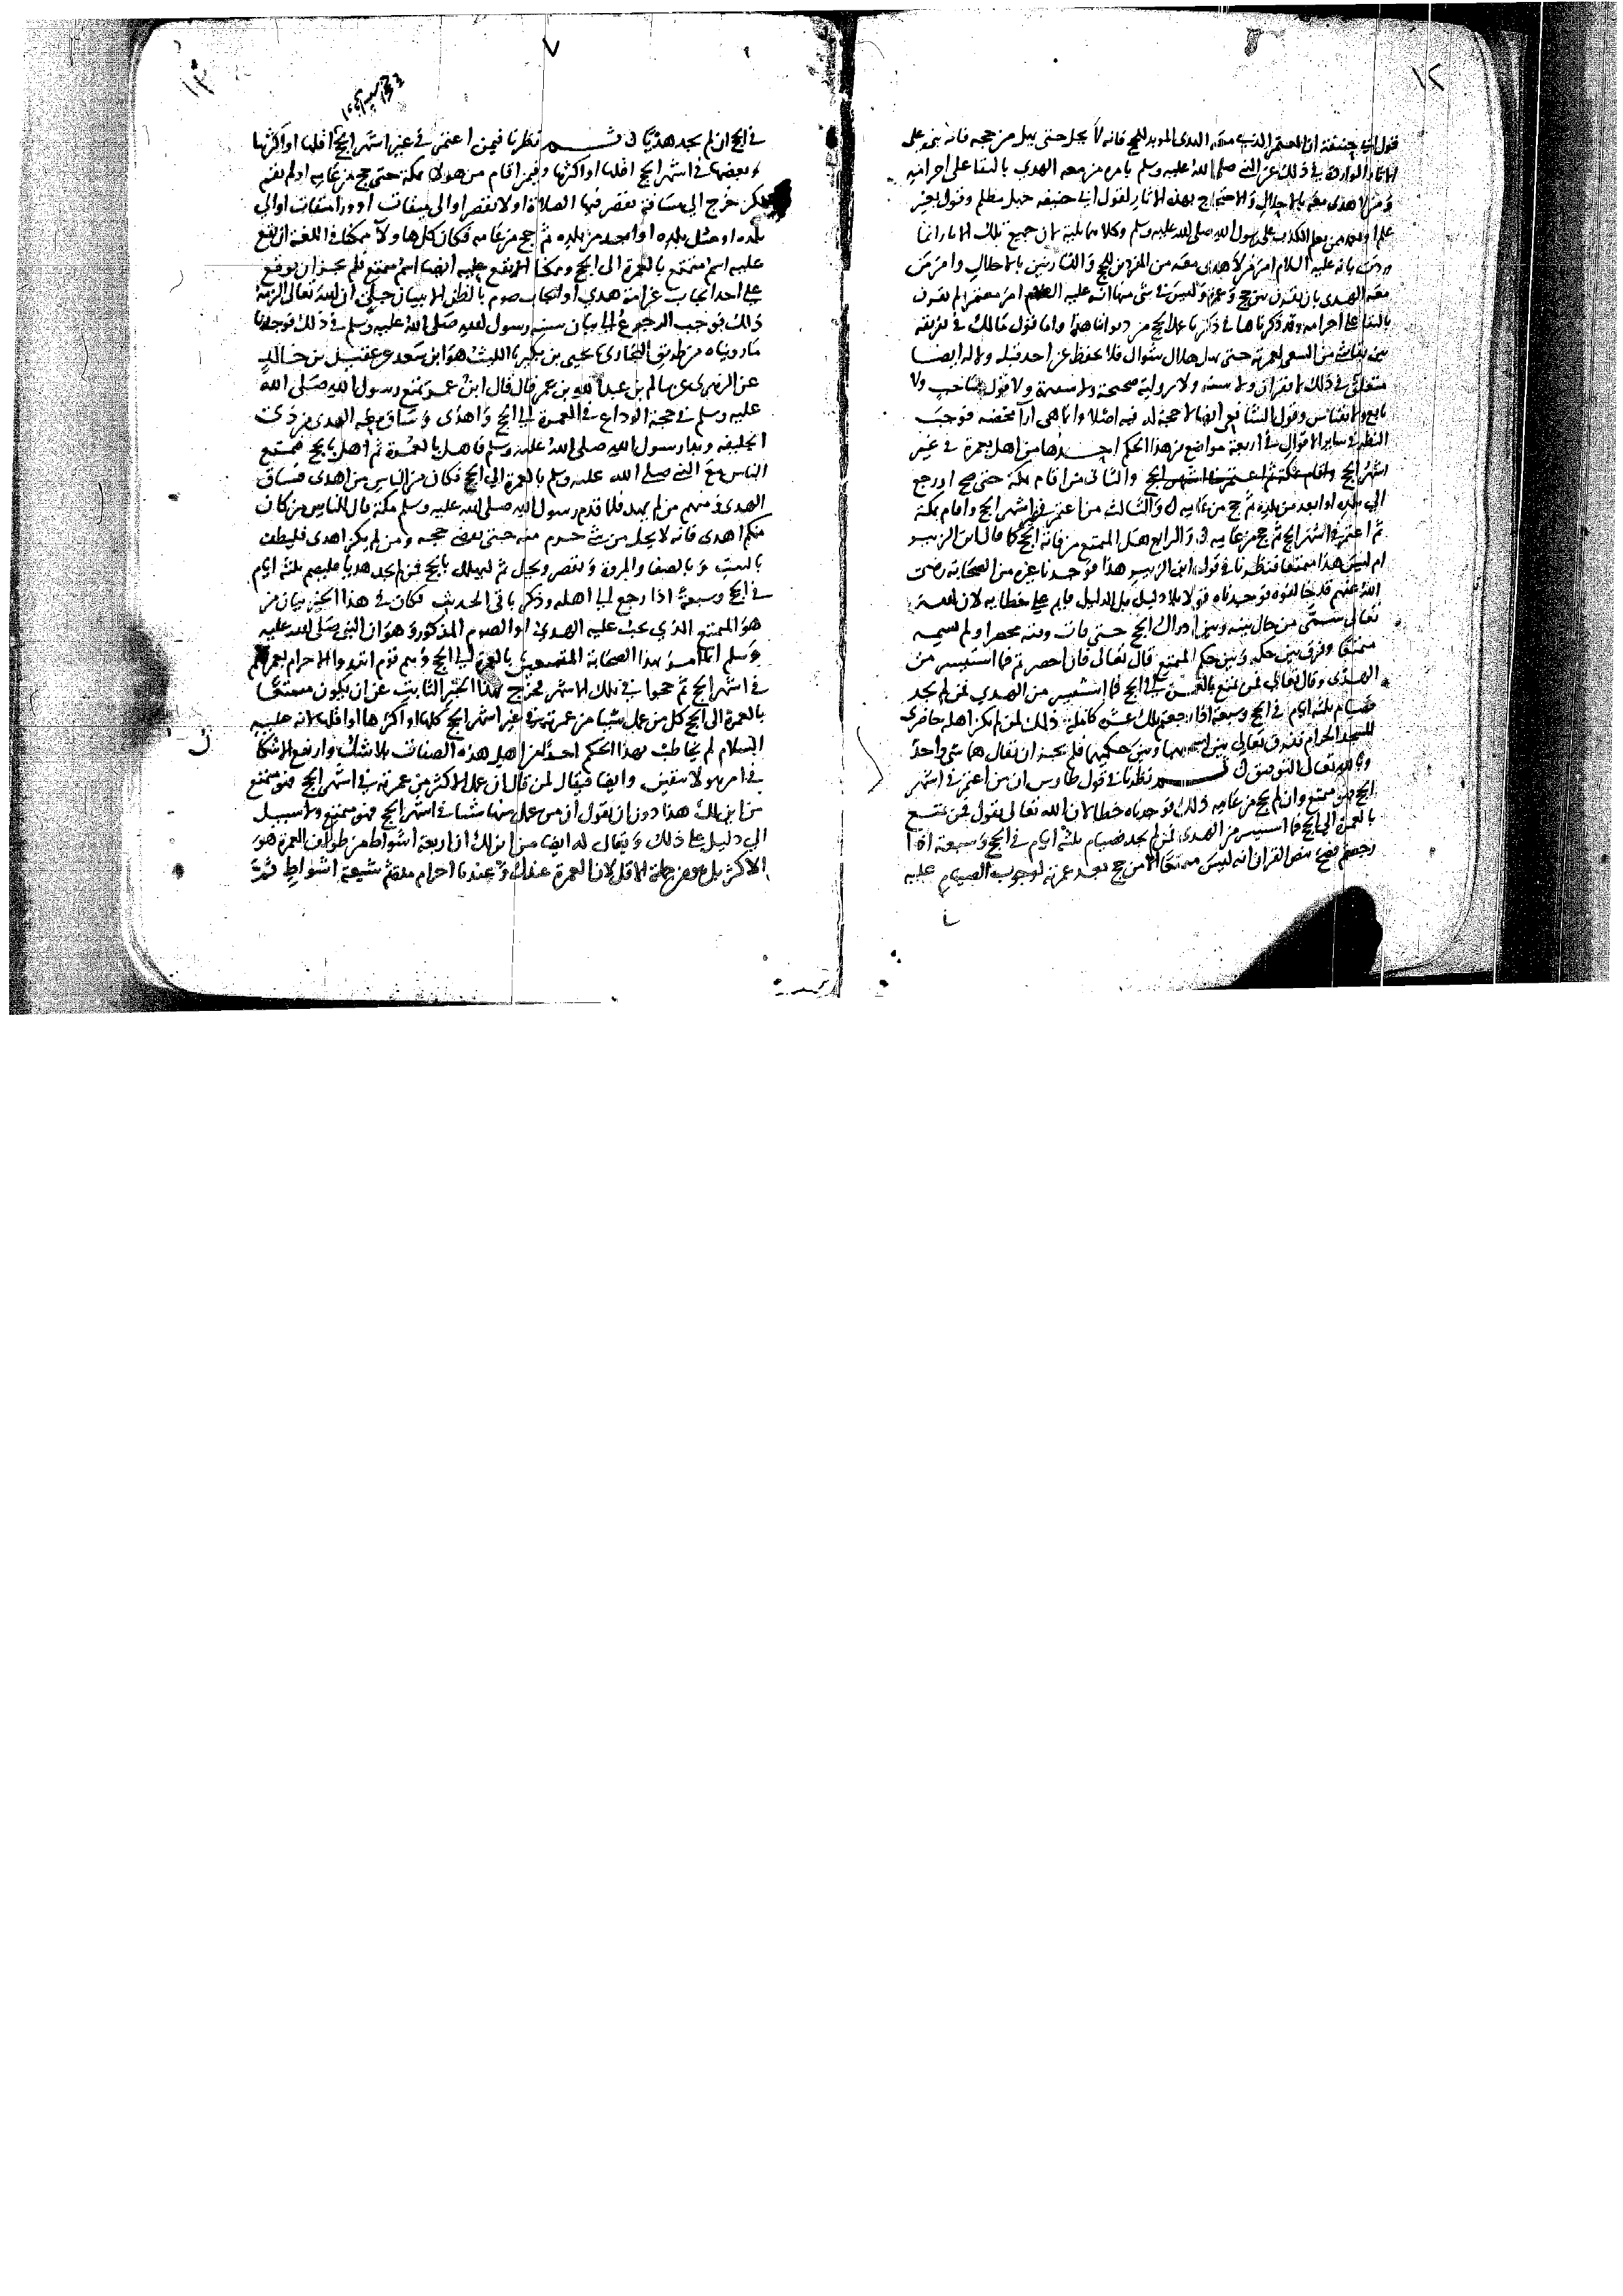 ١٢
قول ابي حنيفة ان المعتمر الذي معه الهدى المريد للحج فانه لا يحل حتى يحل من حجه فانه بنى على
الاثار الواردة في ذلك عن النبي صلى الله عليه وسلم بامره من معه الهدى بالبقا على احرامه
ومن لا هدى معه بالاحلال والاحتجاج بهذه الاثار لقول ابي حنيفة
على رسول الله صلى الله عليه وسلم لان جميع تلك الاثار انما
وردت بانه عليه السلام امر من لا هدى معه من المفردين للحج والقارنين بالاحلال وامر من
معه الهدى بان يقرن بين حج وعمرة وليس في شي منها انه عليه السلام امر معتمرا لم يقرن
بالبقا على احرامه وقد ذكرناها في ذكرنا عمل الحج من ديواننا هذا واما قول مالك في تفريقه
بين من السعي لعمرته حتى يهل هلال شوال فلا يحفظ عن احد قبله ولا له ايضا
متعلق في ذلك لا بقران ولا سنة ولا رواية صحيحة ولا سقيمة ولا قول صاحب ولا
تابع ولا قياس وقول الشافعي ايضا لا حجة له فيه اصلا وانما هي ارآ محضة فوجب
النظر في ساير الاقوال في اربعة مواضع من هذا الحكم احدها من اهل بعمرة في غير
اشهر الحج والثاني من اقام بمكة حتى حج او رجع
الى بلده او ابعد من بلده ثم حج من عامه والثالث من اعتمر في اشهر الحج واقام بمكة
ثم اعتمر في اشهر الحج ثم حج من عامه والرابع هل المتمتع من فاته الحج كما قال ابن الزبير
ام ليس هذا متمتعا فنظرنا في قول ابن الزبير هذا فوجدنا غيره من الصحابة رضى
الله عنهم قد خالفوه فوجدناه قولا بلا دليل بل الدليل قايم على خطايه لان الله
تعالى سمى من حال بينه وبين ادراك الحج حتى فات وقته محصرا ولم يسمه
متمتعا وفرق بين حكمه وبين حكم المتمتع قال تعالى فان احصرتم فما استيسر من
الهدى وقال تعالى فمن تمتع بالعمرة الى الحج فما استيسر من الهدي فمن لم يجد
فصيام ثلثة ايام في الحج وسبعة اذا رجعتم تلك عشرة كاملة ذلك لمن لم يكن اهله حاضري
المسجد الحرام ففرق تعالى بين اسميهما وبين حكميهما فلم يجز ان يقال هما شى واحد
وبالله تعالى التوفيق ثم نظرنا في قول طاوس ان من اعتمر في اشهر
الحج فهو متمتع وان لم يحج من عامه ذلك فوجدناه خطا لان الله تعالى يقول فمن تمتع
بالعمرة الى الحج فما استيسر من الهدى فمن لم يجد فصيام ثلثة ايام في الحج وسبعة اذا
رجعتم فصح بنص القران انه ليس متمتعا الا من حج بعد عمرته لوجوب الصيام عليه
٧
١٣
في الحج ان لم يجد هديا ثم نظرنا فيمن اعتمر في غير اشهر الحج اقلها او اكثرها
وبعضها في اشهر الحج اقلها او اكثرها وفيمن اقام من هولا بمكة حتى حج من عامه او لم يقم
لكن خرج الى مسافة تقصر فيها الصلاة او لا تقصر او الى ميقات او ورا ميقات او الى
بلده او مثل بلده او ابعد من بلده ثم حج من عامه فكان كل هاولآ ممكنا في اللغة ان يقع
عليه اسم متمتع بالعمرة الى الحج وممكنا الا يقع عليه ايضا اسم متمتع فلم يجز ان نوقع
على احد ايجاب غرامة هدي او ايجاب صوم بالظن الا ببيان جلي ان الله تعالى الزمه
ذلك فوجب الرجوع الى بيان سنة رسول الله صلى الله عليه وسلم في ذلك فوجدنا
ما رويناه من طريق البخاري نا يحيى بن بكير نا الليث هو ابن سعد عن عقيل بن خالد
عن الزهري عن سالم بن عبد الله بن عمر قال قال ابن عمر تمتع رسول الله صلى الله
عليه وسلم في حجة الوداع في العمرة الى الحج واهدى وساق معه الهدى من ذى
الحليفة وبدا رسول الله صلى الله عليه وسلم فاهل بالعمرة ثم اهل بالحج فتمتع
الناس مع النبي صلى الله عليه وسلم بالعمرة الى الحج فكان من الناس من اهدى فساق
الهدى ومنهم من لم يهد فلما قدم رسول الله صلى الله عليه وسلم مكة قال للناس من كان
منكم اهدى فانه لا يحل من شي حرم منه حتى يقضي حجه ومن لم يكن اهدى فليطف
بالبيت وبالصفا والمروة وليقصر وليحل ثم ليهلل بالحج فمن لم يجد هديا فليصم ثلثة ايام
في الحج وسبعة اذا رجع الى اهله وذكر باقي الحديث فكان في هذا الخبر بيان من
هو المتمتع الذي يجب عليه الهدي او الصوم المذكور وهو ان النبي صلى الله عليه
وسلم انما امر بهذا الصحابة المتمتعين بالعمرة الى الحج وهم قوم ابتدوا الاحرام بعمرتهم
في اشهر الحج ثم حجوا في تلك الاشهر فخرج بهذا الخبر الثابت عن ان يكون متمتعا
بالعمرة الى الحج كل من عمل شيا من عمرته في غير اشهر الحج كلها او اكثرها او اقلها لانه عليه
السلام لم يخاطب بهذا الحكم احدا من اهل هذه الصفات بلا شك وارتفع الاشكال
في امر هولا بيقين وايضا فيقال لمن قال ان عمل الاكثر من عمرته في اشهر الحج فهو متمتع
من اين لك هذا دون ان تقول ان من عمل منها شيا في اشهر الحج فهو متمتع ولا سبيل
الى دليل على ذلك ويقال له ايضا من اين لك ان اربعة اشواط من طواف العمرة هو
الاكثر بل هو من جملة الاقل لان العمرة عندك وعندنا احرام متقدم سبعة اشواط ثم